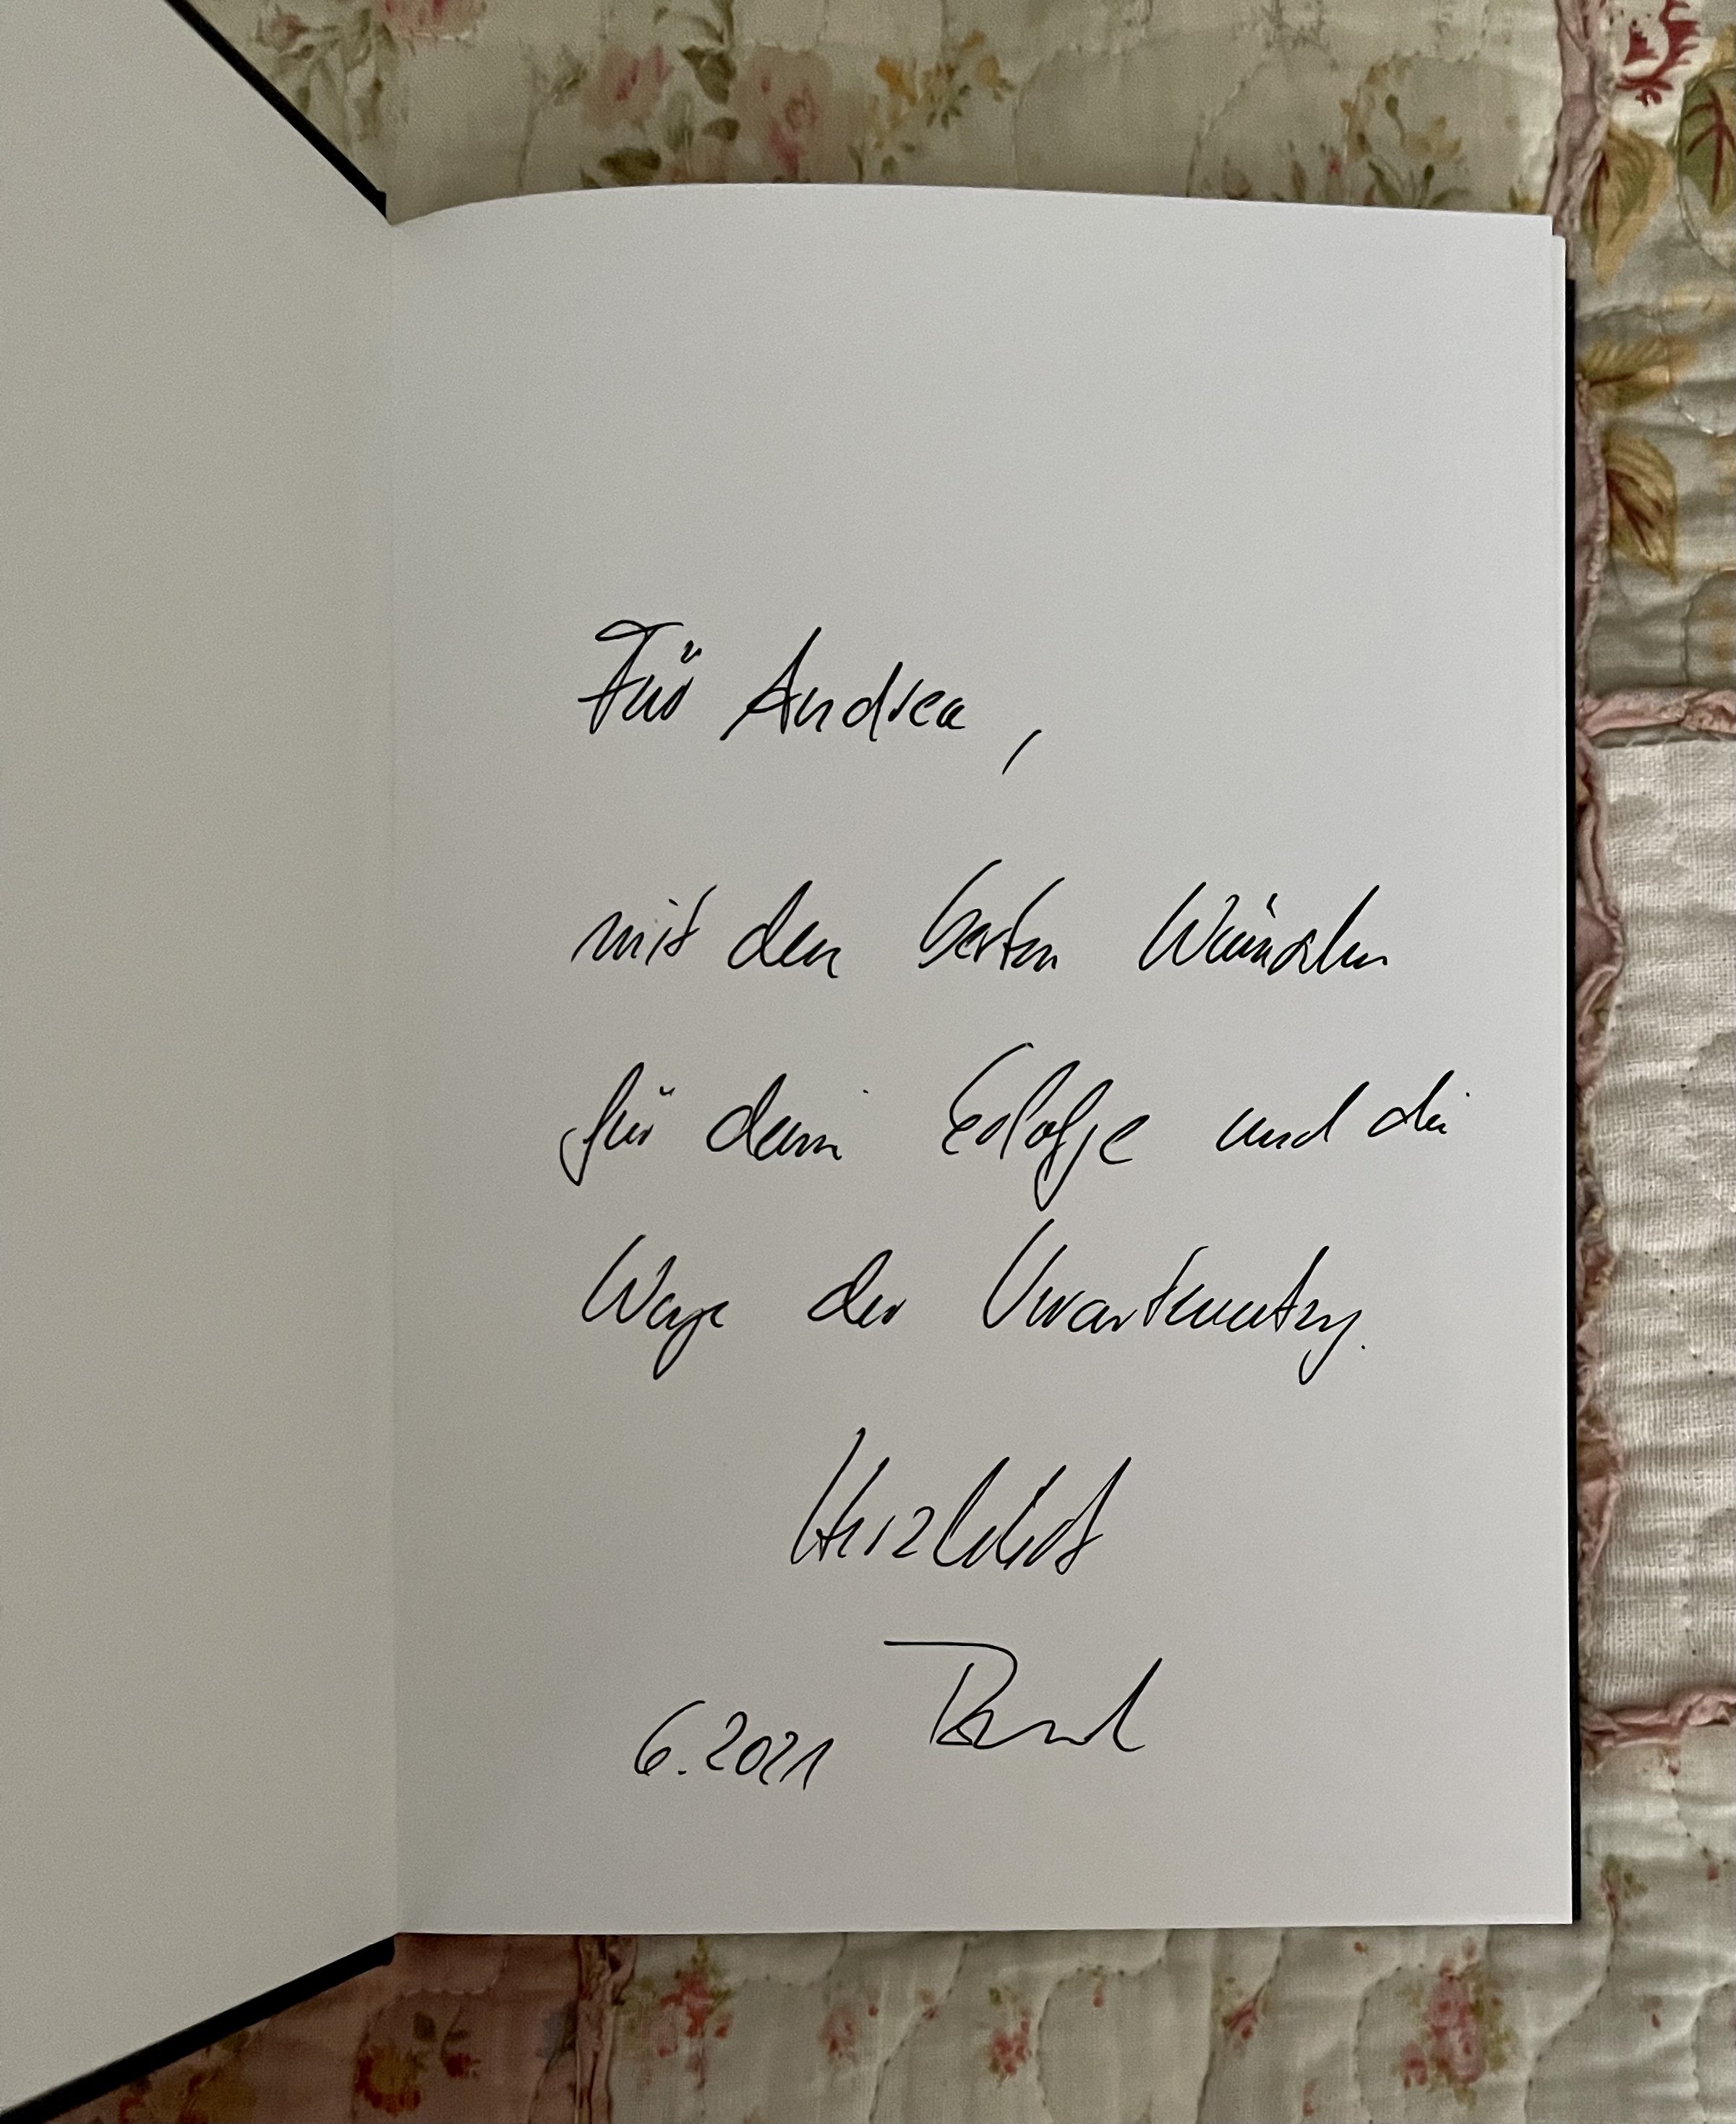 Für Andrea,
mit den besten Wünschen
für deine Erfolge und die
Wege der Verantwortung.
Herzlichst
6.2021